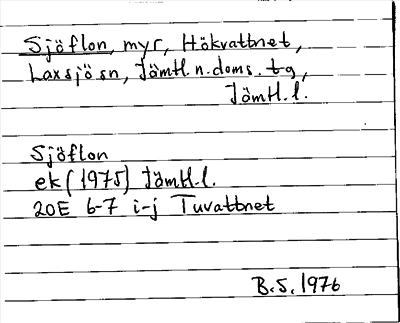 Sjöflon, myr, Hökvattnet,
Laxsjö sn, Jämtl. n. doms. tg,
Jämtl. l.
Sjöflon
ek (1975) Jämtl. l.
20E 6-7 i-j Tuvattnet
B.S. 1976